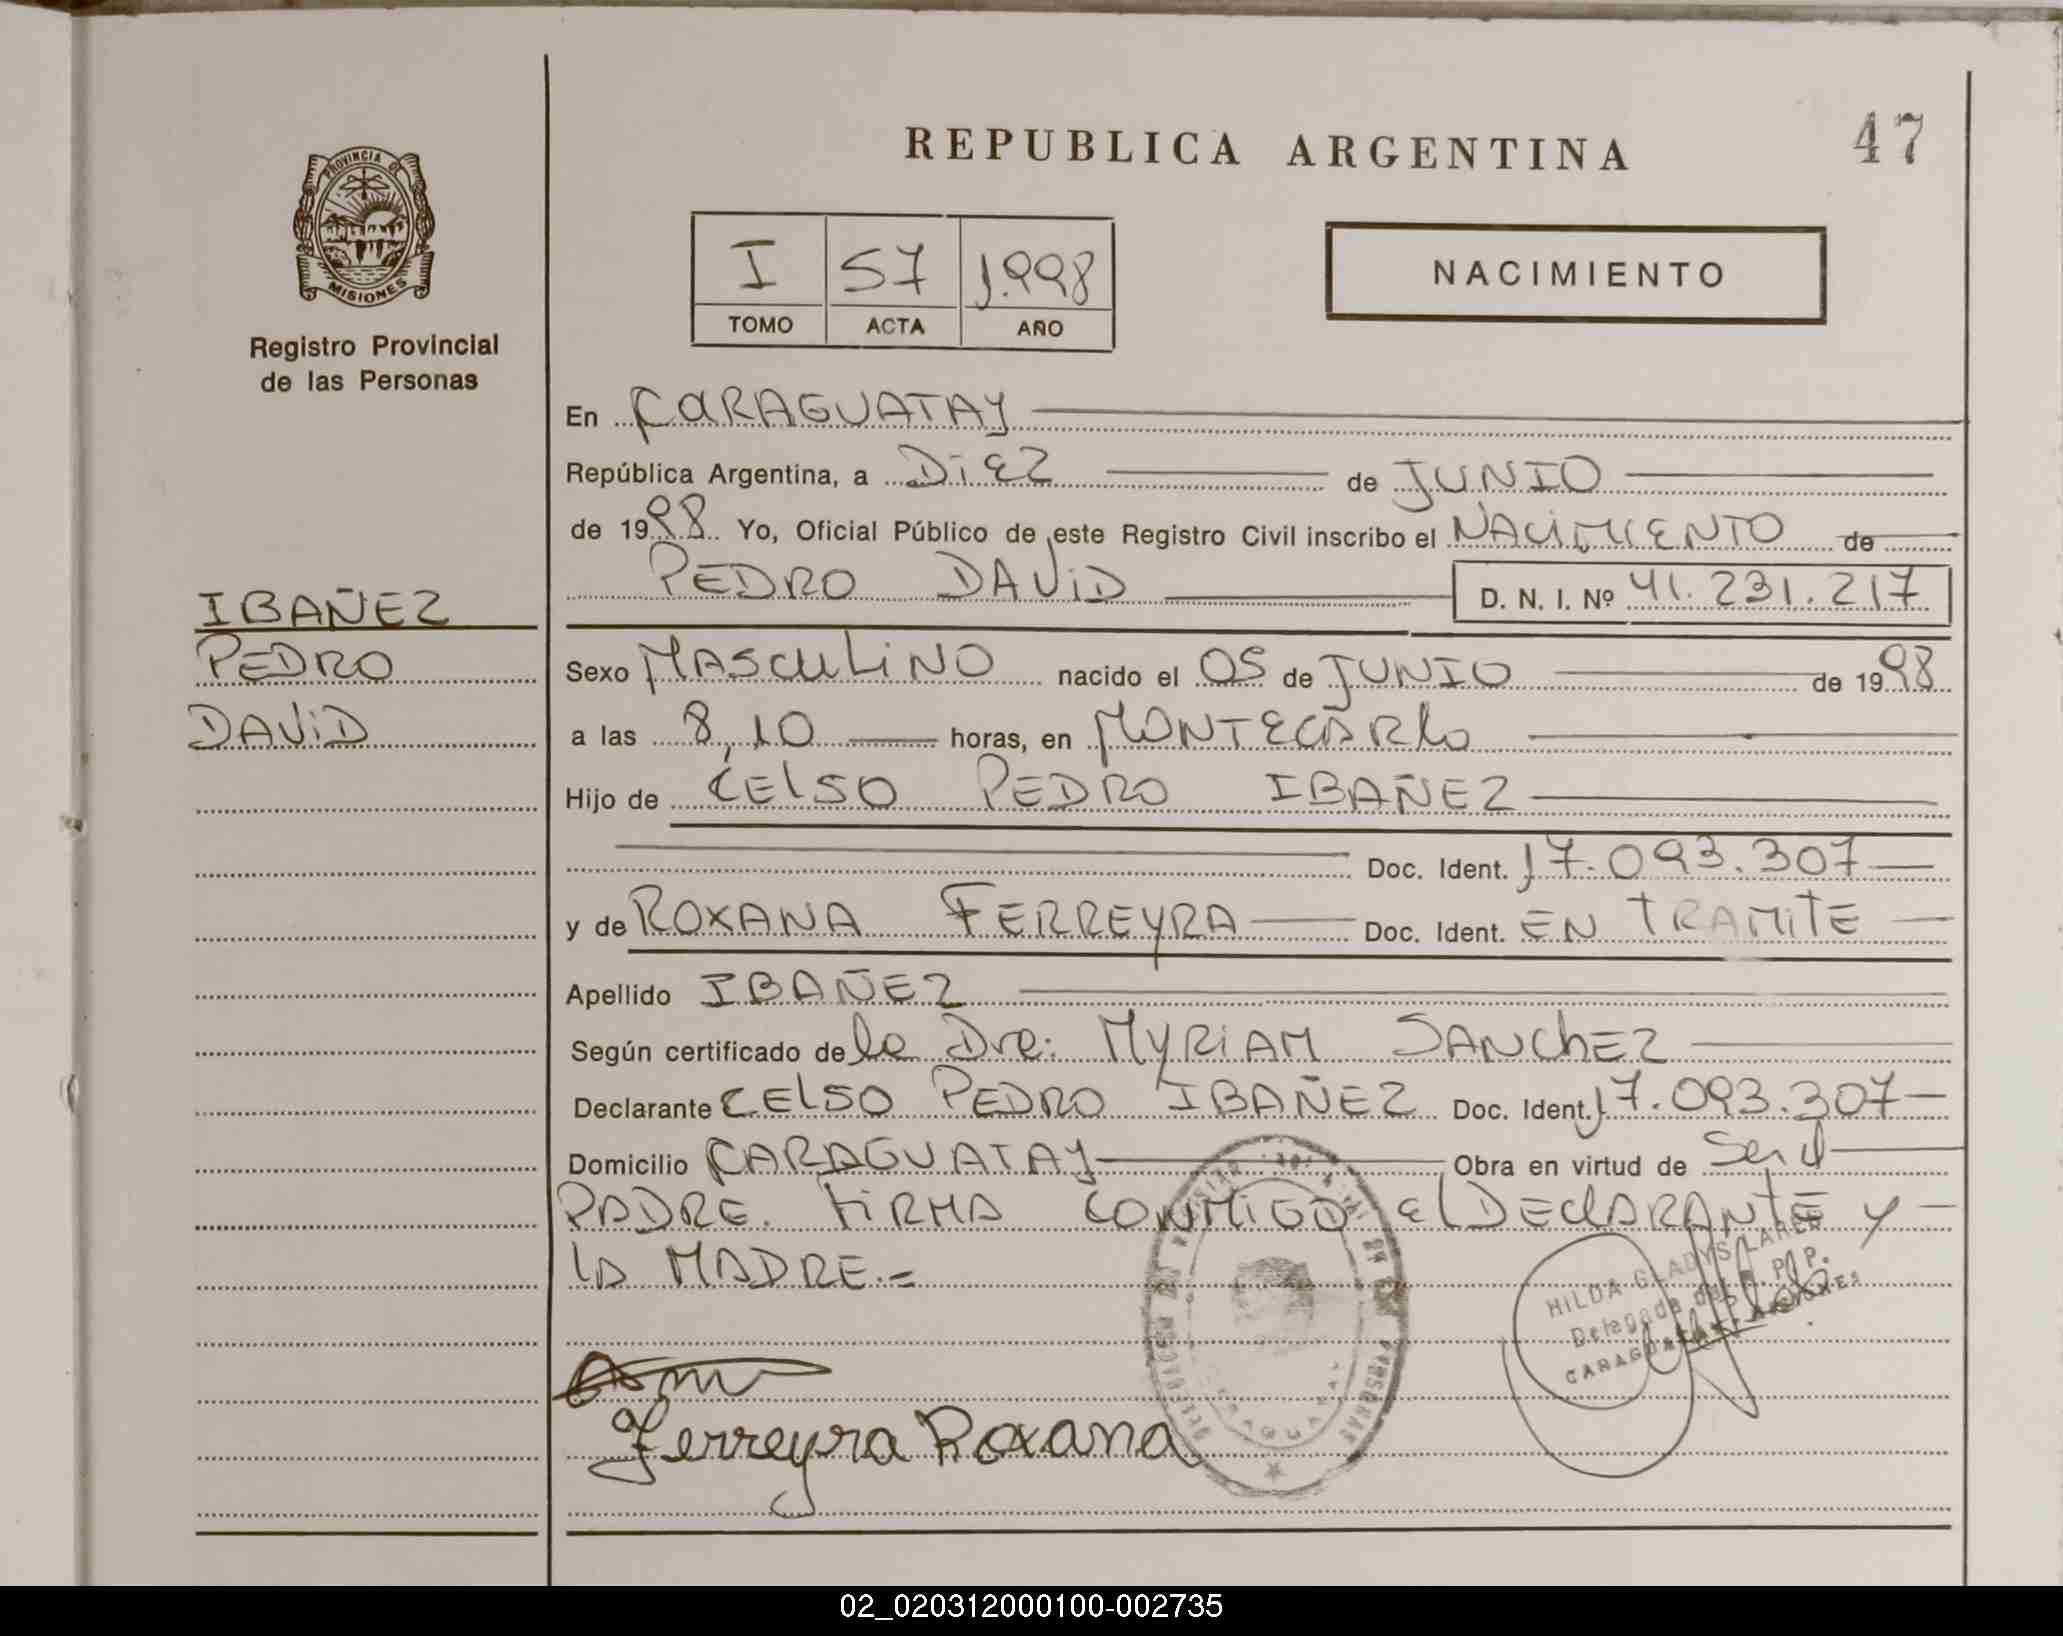 REPUBLICA ARGENTINA
47
PROVINCIA DE
MISIONES
Registro Provincial
de las Personas
I 57 1.998
TOMO ACTA AÑO
NACIMIENTO
En CARAGUATAY
República Argentina, a DiEZ de JUNIO
de 1998 Yo, Oficial Público de este Registro Civil inscribo el NACiMiENTO de
PEDRO DAViD D. N. I. Nº 41.231.217
IBAÑEZ
PEDRO
DAViD
Sexo MASCULiNO nacido el 05 de JUNIO de 1998
a las 8,10 horas, en MONTECARlo
Hijo de CElSO PEDRO IBAÑEZ
Doc. Ident. 17.093.307
y de ROXANA FERREYRA Doc. Ident. EN TRAMiTE
Apellido IBAÑEZ
Según certificado de la Dra. MYRiAM SANChEZ
Declarante CElSO PEDRO IBAÑEZ Doc. Ident. 17.093.307
Domicilio CARAGUATAY Obra en virtud de Ser el
PADRE. FiRMA CONMiGO El DEClARANTE y
lA MADRE.=
HILDA GLADYS
Delegada del R. P. P.
CARAGUATAY MISIONES
Ferreyra Roxana
02_020312000100-002735